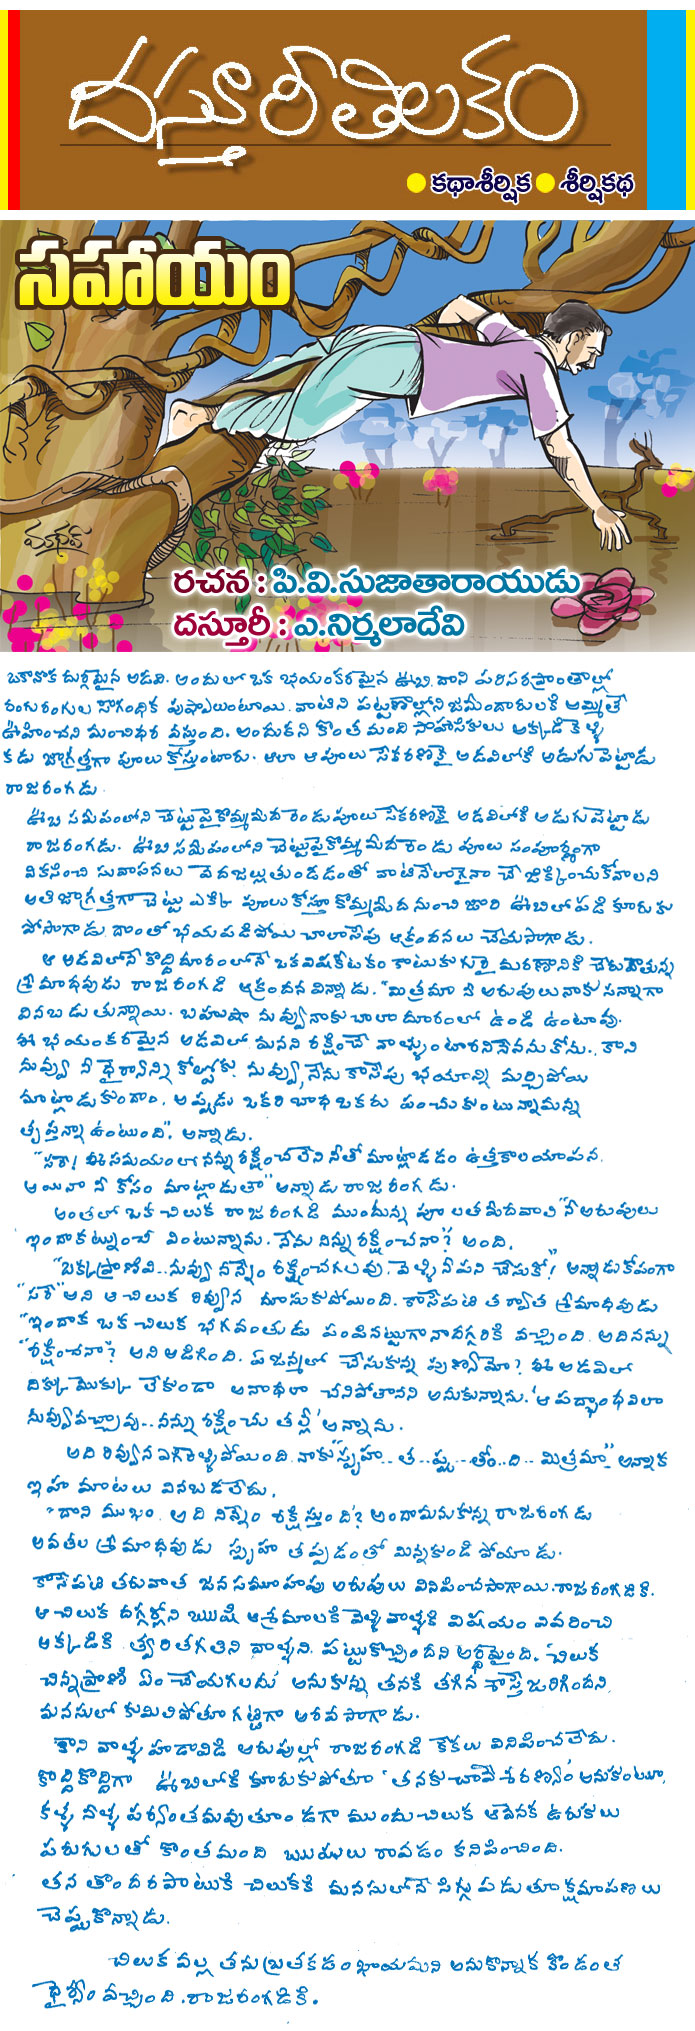 దస్తూరీతిలకం
కథాశీర్షిక శీర్షికథ
సహాయం
మాధవ్
రచన : పి.వి.సుజాతారాయుడు
దస్తూరీ : ఎ.నిర్మలాదేవి
ఒకానొక దుర్గమైన అడవి. అందులో ఒక భయంకరమైన ఊబి. దాని పరిసరప్రాంతాల్లో
రంగురంగుల సౌగంధిక పుష్పాలుంటాయి. వాటిని పట్టణాల్లోని జమీందారులకి అమ్మితే
ఊహించని మంచిధర వస్తుంది. అందుకని కొంత మంది సాహసికులు అక్కడికెళ్ళి
కడు జాగ్రత్తగా పూలు కోస్తుంటారు. అలా ఆ పూలు సేకరణకై అడవిలోకి అడుగుపెట్టాడు
రాజరంగడు.
ఊబి సమీపంలోని చెట్టుపై కొమ్మమీద రెండుపూలు సేకరణకై అడవిలోకి అడుగుపెట్టాడు
రాజరంగడు. ఊబి సమీపంలోని చెట్టుపై కొమ్మమీద రెండు పూలు సంపూర్ణంగా
వికసించి సువాసనలు వెదజల్లుతుండడంతో వాటినెలాగైనా చేజిక్కించుకోవాలని
అతి జాగ్రత్తగా చెట్టు ఎక్కి పూలుకోస్తూ కొమ్మమీదనుంచి జారి ఊబిలోపడి కూరుకు
పోసాగాడు. దాంతో భయపడిపోయి చాలాసేపు ఆక్రందనలు చేయసాగాడు.
ఆ అడవిలోనే కొద్దిదూరంలోనే ఒకవిషకీటకం కాటుకుగురై మరణానికి చేరువౌతున్న
శ్రీమాధవుడు రాజరంగడి ఆక్రందన విన్నాడు. "మిత్రమా నీ అరుపులునాకు సన్నగా
వినబడుతున్నాయి. బహుశా నువ్వునాకు చాలా దూరంలో ఉండి ఉంటావు.
ఈ భయంకరమైన అడవిలో మనని రక్షించే వాళ్ళుంటారనినేననుకోను.. కాని
నువ్వు నీ ధైర్యాన్ని కోల్పోకు. నువ్వు, నేను కాసేపు భయాన్ని మర్చిపోయి
మాట్లాడుకుందాం. అప్పుడు ఒకరి బాధ ఒకరు పంచుకుంటున్నామన్న
తృప్తన్నా ఉంటుంది". అన్నాడు.
"సరే! ఈ సమయంలో నన్ను రక్షించలేని నీతో మాట్లాడడం ఉత్తకాలయాపన.
అయినా నీ కోసం మాట్లాడుతా" అన్నాడు రాజరంగడు.
అంతలో ఒక చిలుక రాజరంగడి ముందున్న పూలతమీదవాలి "నీ అరుపులు
ఇందాకట్నుంచీ వింటున్నాను. నేను నిన్ను రక్షించనా? అంది.
"బక్కప్రాణివి..నువ్వు నన్నేం రక్షించగలవు. వెళ్ళి నీ పని చేసుకో!" అన్నాడుకోపంగా
"సరే" అని ఆ చిలుక రివ్వున దూసుకుపోయింది. కాసేపటి తర్వాత శ్రీమాధవుడు
"ఇందాక ఒక చిలుక భగవంతుడు పంపినట్టుగా నాదగ్గరికి వచ్చింది. అది నన్ను
"రక్షించనా? అని అడిగింది. ఏ జన్మలో చేసుకొన్న పుణ్యమో? ఈ అడవిలో
దిక్కుమొక్కు లేకుండా అనాథలా చనిపోతానని అనుకున్నాను. 'ఆపద్బాంధవిలా
నువ్వువచ్చావు..నన్ను రక్షించు తల్లీ' అన్నాను.
అది రివ్వున ఎగిరెళ్ళిపోయింది. నాకు"స్పృహ.. త..ప్పు..తోం..ది.. మిత్రమా" అన్నాక
ఇహ మాటలు వినబడలేదు.
"దాని ముఖం. అది నిన్నేం రక్షిస్తుంది'? అందామనుకున్న రాజరంగడు
అవతల శ్రీమాధవుడు స్పృహ తప్పడంతో మిన్నకుండి పోయాడు.
కాసేపటి తరువాత జనసమూహపు అరుపులు వినిపించసాగాయి.రాజరంగడికి.
ఆ చిలుక దగ్గర్లోని ఋషి ఆశ్రమాలకి వెళ్ళివాళ్ళకి విషయం వివరించి
అక్కడికి త్వరితగతిని వాళ్ళని పట్టుకొచ్చిందని అర్థమైంది. 'చిలుక
చిన్నప్రాణి ఏం చేయగలదు' అనుకున్న తనకి తగిన శాస్తేజరిగిందని,
మనసులో కుమిలిపోతూ గట్టిగా అరవసాగాడు.
కాని వాళ్ళ హడావిడి అరుపుల్లో రాజరంగడి కేకలు వినిపించలేదు.
కొద్దికొద్దిగా ఊబిలోకి కూరుకుపోతూ 'తనకు చావే శరణ్యం' అనుకుంటూ,
కళ్ళ నీళ్ళ పర్యంతమవుతూండగా ముందుచిలుక ఆవెనక ఉరుకులు
పరుగులతో కొంతమంది ఋషులు రావడం కనిపించింది.
తన తొందరపాటుకి చిలుకకి మనసులోనే సిగ్గుపడుతూక్షమాపణలు
చెప్పుకొన్నాడు.
చిలుక వల్ల తను బ్రతకడం ఖాయమని అనుకొన్నాక కొండంత
ధైర్యం వచ్చింది.రాజరంగడికి.